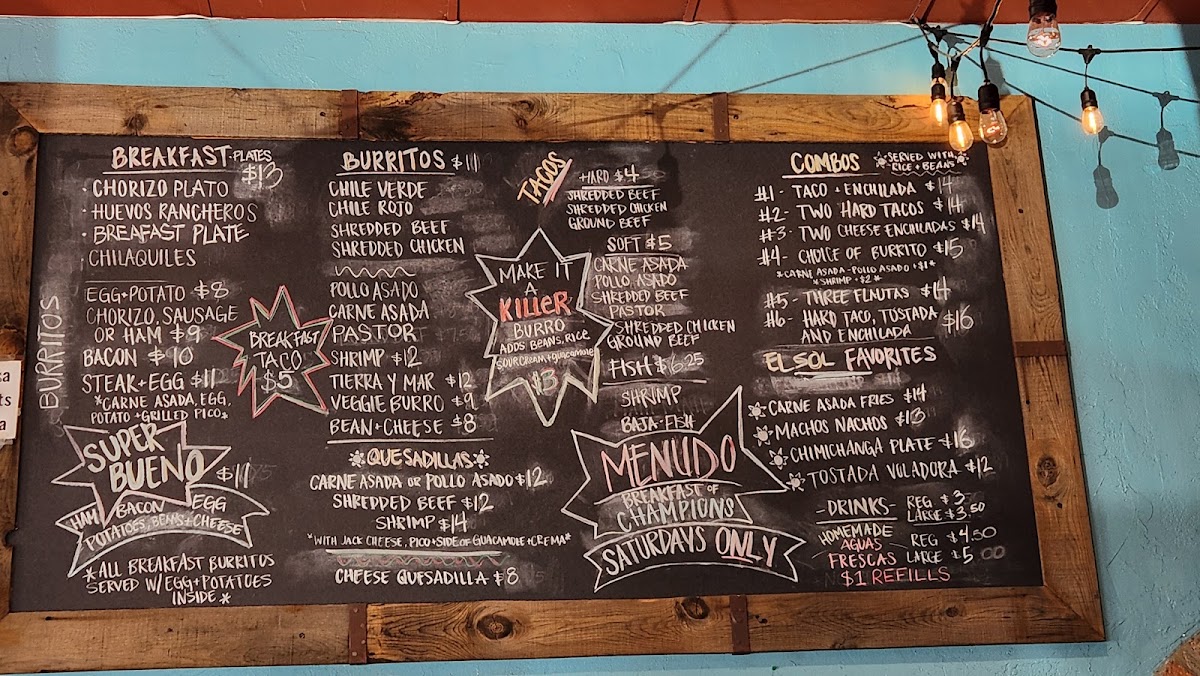 BREAKFAST PLATES
$13
· CHORIZO PLATO
· HUEVOS RANCHEROS
· BREAFAST PLATE
· CHILAQUILES
BURRITOS
EGG+POTATO $8
CHORIZO, SAUSAGE
OR HAM $9
BACON $10
STEAK+EGG $11
*CARNE ASADA, EGG,
POTATO+GRILLED PICO*
BREAKFAST
TACO
$5
SUPER
BUENO
$11
HAM BACON EGG
POTATOES, BEANS+CHEESE
*ALL BREAKFAST BURRITOS
SERVED W/EGG+POTATOES
INSIDE*
BURRITOS $11
CHILE VERDE
CHILE ROJO
SHREDDED BEEF
SHREDDED CHICKEN
POLLO ASADO
CARNE ASADA
PASTOR
SHRIMP $12
TIERRA Y MAR $12
VEGGIE BURRO $9
BEAN+CHEESE $8
QUESADILLAS
CARNE ASADA OR POLLO ASADO $12
SHREDDED BEEF $12
SHRIMP $14
*WITH JACK CHEESE, PICO+SIDE OF GUACAMOLE+CREMA*
CHEESE QUESADILLA $8
MAKE IT
A
KILLER
BURRO
ADDS BEANS, RICE
SOUR CREAM+GUACAMOLE
$3
TACOS
HARD $4
SHREDDED BEEF
SHREDDED CHICKEN
GROUND BEEF
SOFT $5
CARNE ASADA
POLLO ASADO
SHREDDED BEEF
PASTOR
SHREDDED CHICKEN
GROUND BEEF
FISH $6.25
SHRIMP
BAJA FISH
MENUDO
BREAKFAST OF
CHAMPIONS
SATURDAYS ONLY
COMBOS SERVED WITH
RICE+BEANS
#1- TACO+ENCHILADA $14
#2- TWO HARD TACOS $14
#3- TWO CHEESE ENCHILADAS $14
#4- CHOICE OF BURRITO $15
*CARNE ASADA-POLLO ASADO+$1*
*SHRIMP+$2*
#5- THREE FLAUTAS $14
#6- HARD TACO, TOSTADA
AND ENCHILADA $16
EL SOL FAVORITES
CARNE ASADA FRIES $14
MACHOS NACHOS $13
CHIMICHANGA PLATE $16
TOSTADA VULADORA $12
-DRINKS- REG $3
LARGE $3.50
HOMEMADE
AGUAS
FRESCAS
REG $4.50
LARGE $5
$1 REFILLS